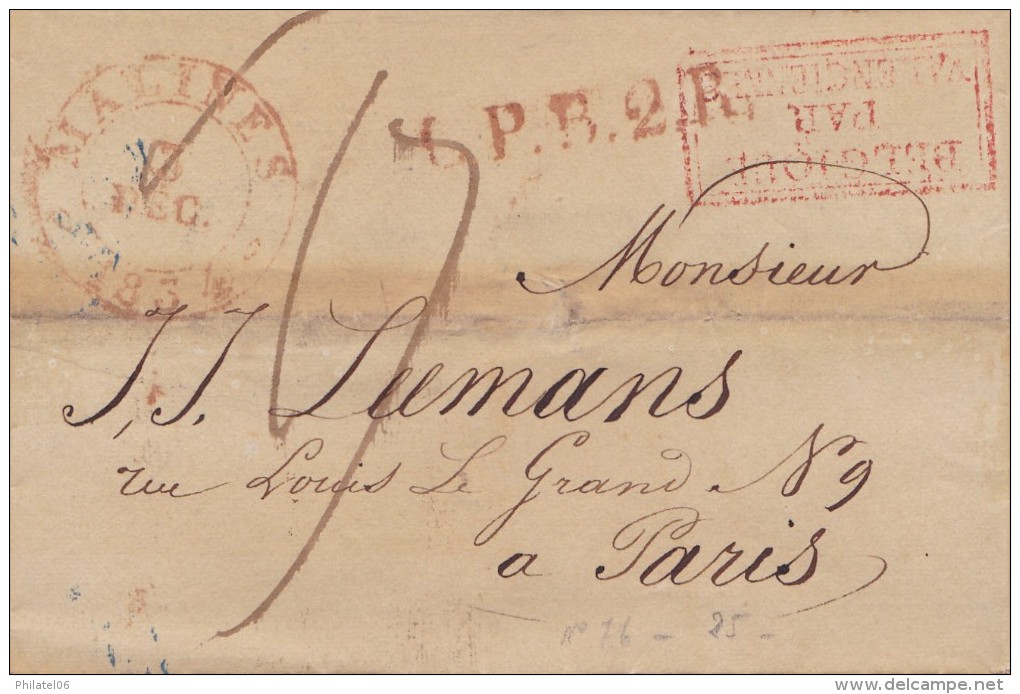 MALINES
6
DEC.
183
L.P.B.2.R.
BELGIQUE
PAR
VALENCIENNES
Monsieur
J, J. Leemans
rue Louis Le Grand N 9
a Paris
Nº 76 - 85 -
Philatel06
delcampe.net